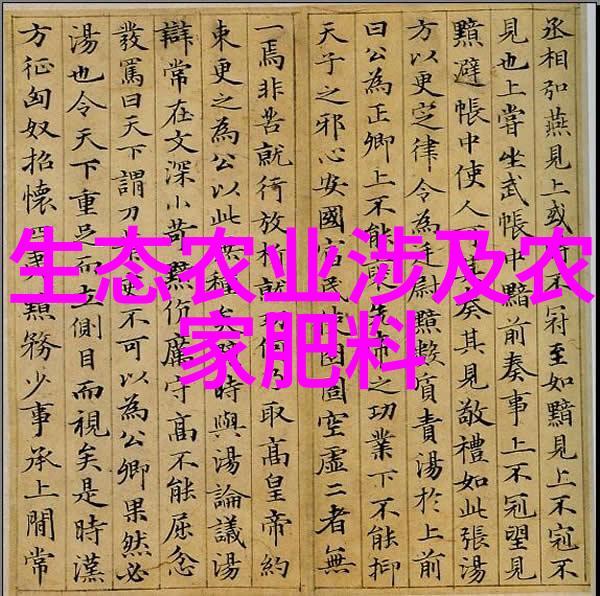 生态农业涉及农
家肥料
丞相弘燕見上或不冠至如黯見上不冠不
見也上嘗坐武帳中黯前奏事上不冠望見
黯避帳中使人其奏其見敬禮如此張湯
方以更定律令為廷尉黯數質責湯於上前
曰公為正卿上不能先帝之功業下不能抑
天子之邪心安國富民使囹圄空虛二者無
一焉非苦就行放析就功何乃取高皇帝約
束更之為公以此無種矣黯時與湯論議湯
辯常在文深小苛黯伉厲守高不能屈忿
發罵曰天下謂刀筆吏不可以為公卿果然必
湯也令天下重足而立側目而視矣是時漢
方征匈奴招懷四夷黯務少事承上間常